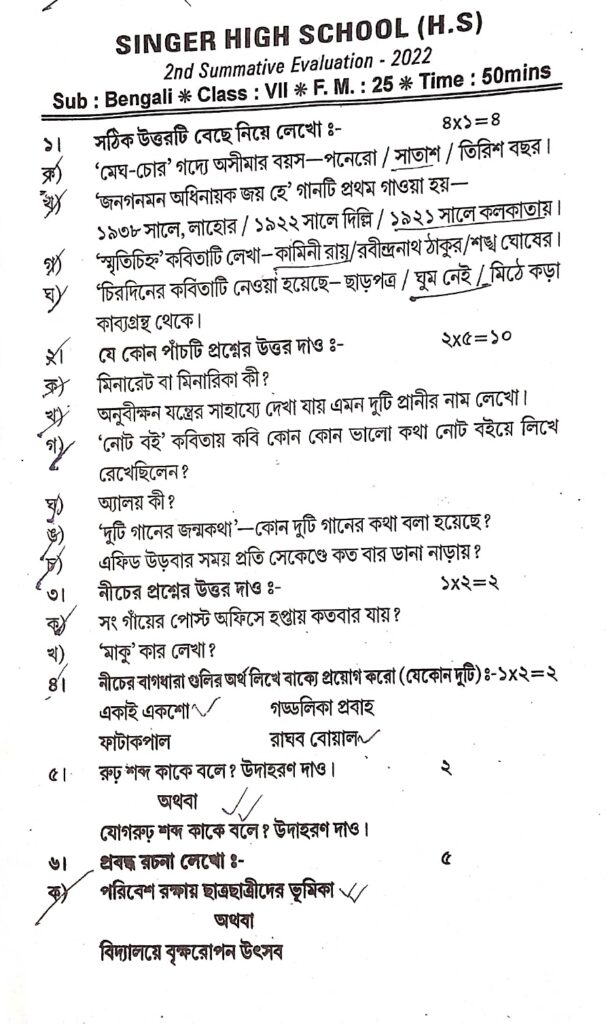 SINGER HIGH SCHOOL (H.S)
2nd Summative Evaluation - 2022
Sub : Bengali ✳ Class : VII ✳ F. M. : 25 ✳ Time : 50mins
১। সঠিক উত্তরটি বেছে নিয়ে লেখো ঃ- ৪x১=৪
ক) 'মেঘ-চোর' গদ্যে অসীমার বয়স—পনেরো / সাতাশ / তিরিশ বছর।
খ) 'জনগনমন অধিনায়ক জয় হে' গানটি প্রথম গাওয়া হয়—
১৯৩৮ সালে, লাহোর / ১৯২২ সালে দিল্লি / ১৯২১ সালে কলকাতায়।
গ) 'স্মৃতিচিহ্ন' কবিতাটি লেখা—কামিনী রায়/রবীন্দ্রনাথ ঠাকুর/শঙ্খ ঘোষের।
ঘ) 'চিরদিনের কবিতাটি নেওয়া হয়েছে— ছাড়পত্র / ঘুম নেই / মিঠে কড়া
কাব্যগ্রন্থ থেকে।
২। যে কোন পাঁচটি প্রশ্নের উত্তর দাও ঃ- ২x৫=১০
ক) মিনারেট বা মিনারিকা কী?
খ) অনুবীক্ষন যন্ত্রের সাহায্যে দেখা যায় এমন দুটি প্রানীর নাম লেখো।
গ) 'নোট বই' কবিতায় কবি কোন কোন ভালো কথা নোট বইয়ে লিখে
রেখেছিলেন?
ঘ) অ্যালয় কী?
ঙ) 'দুটি গানের জন্মকথা'—কোন দুটি গানের কথা বলা হয়েছে?
চ) এফিড উড়বার সময় প্রতি সেকেণ্ডে কত বার ডানা নাড়ায়?
৩। নীচের প্রশ্নের উত্তর দাও ঃ- ১x২=২
ক) সং গাঁয়ের পোস্ট অফিসে হপ্তায় কতবার যায়?
খ) 'মাকু' কার লেখা?
৪। নীচের বাগধারা গুলির অর্থ লিখে বাক্যে প্রয়োগ করো (যেকোন দুটি) ঃ-১x২=২
একাই একশো গড্ডলিকা প্রবাহ
ফাটাকপাল রাঘব বোয়াল
৫। রুঢ় শব্দ কাকে বলে? উদাহরণ দাও। ২
অথবা
যোগরুঢ় শব্দ কাকে বলে? উদাহরণ দাও।
৬। প্রবন্ধ রচনা লেখো ঃ- ৫
ক) পরিবেশ রক্ষায় ছাত্রছাত্রীদের ভূমিকা
অথবা
বিদ্যালয়ে বৃক্ষরোপন উৎসব